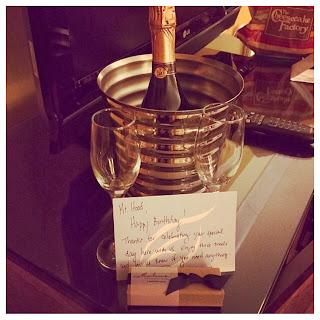 The
Cheesecake
Factory
Mr. Hood,
Happy Birthday!
Thanks for celebrating your special
day here with us. Enjoy these treats
and let us know if you need anything